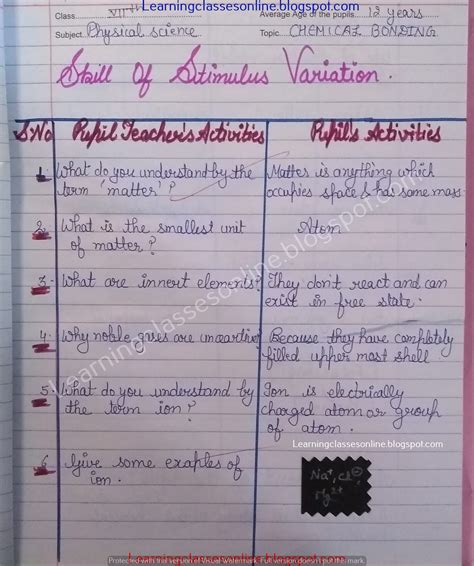 Learningclassesonline.blogspot.com
Class VIIth Average Age of the pupils 12 years
Subject Physical science Topic CHEMICAL BONDING
Skill Of Stimulus Variation.
S.No Pupil Teacher's Activities Pupil's Activities
1. What do you understand by the Matter is anything which
term 'matter'? occupies space & has some mass
2. What is the smallest unit Atom
of matter?
3. What are innert elements? They don't react and can
exist in free state.
4. Why noble gases are unreactive Because they have completely
filled upper most shell
5. What do you understand by Ion is electrically
the term ion? charged atom or group
of atom.
Learningclassesonline.blogspot.com
6. Give some exaples of Na+, Cl-
ion. Mg2+
Learningclassesonline.blogspot.com
Learningclassesonline.blogspot.com
Protected with free version of Visual Watermark. Full version doesn't put this mark.